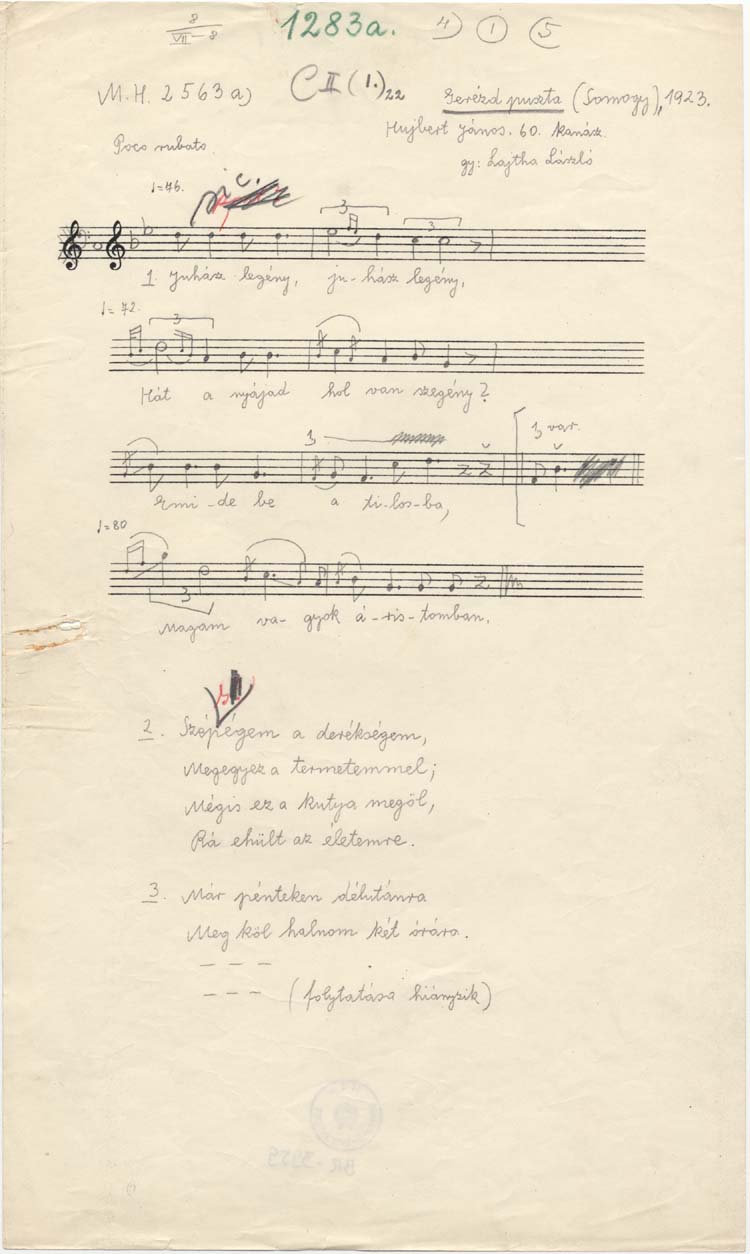 8
VII-8
1283a.
4) 1 5
M.H. 2563a)
C II (1.)22
Gerézd puszta (Somogy), 1923.
Hujbert János. 60. kanász.
Poco rubato.
gy: Lajtha László
♩=76.
sic.
3 3
1. Juhász legény, ju-hász legény,
♩=72.
3
Hát a nyájad hol van szegény?
3
1,3 var.
Emi-de be a ti-los-ba,
♩=80
3
Magam va-gyok á-ris-tomban.
2. Szépégem a derékségem,
Megegyez a termetemmel;
Mégis ez a kutya megöl,
Rá ehült az életemre.
3. Már pénteken délutánra
Meg köl halnom két órára.
— — —
— — — (folytatása hiányzik)